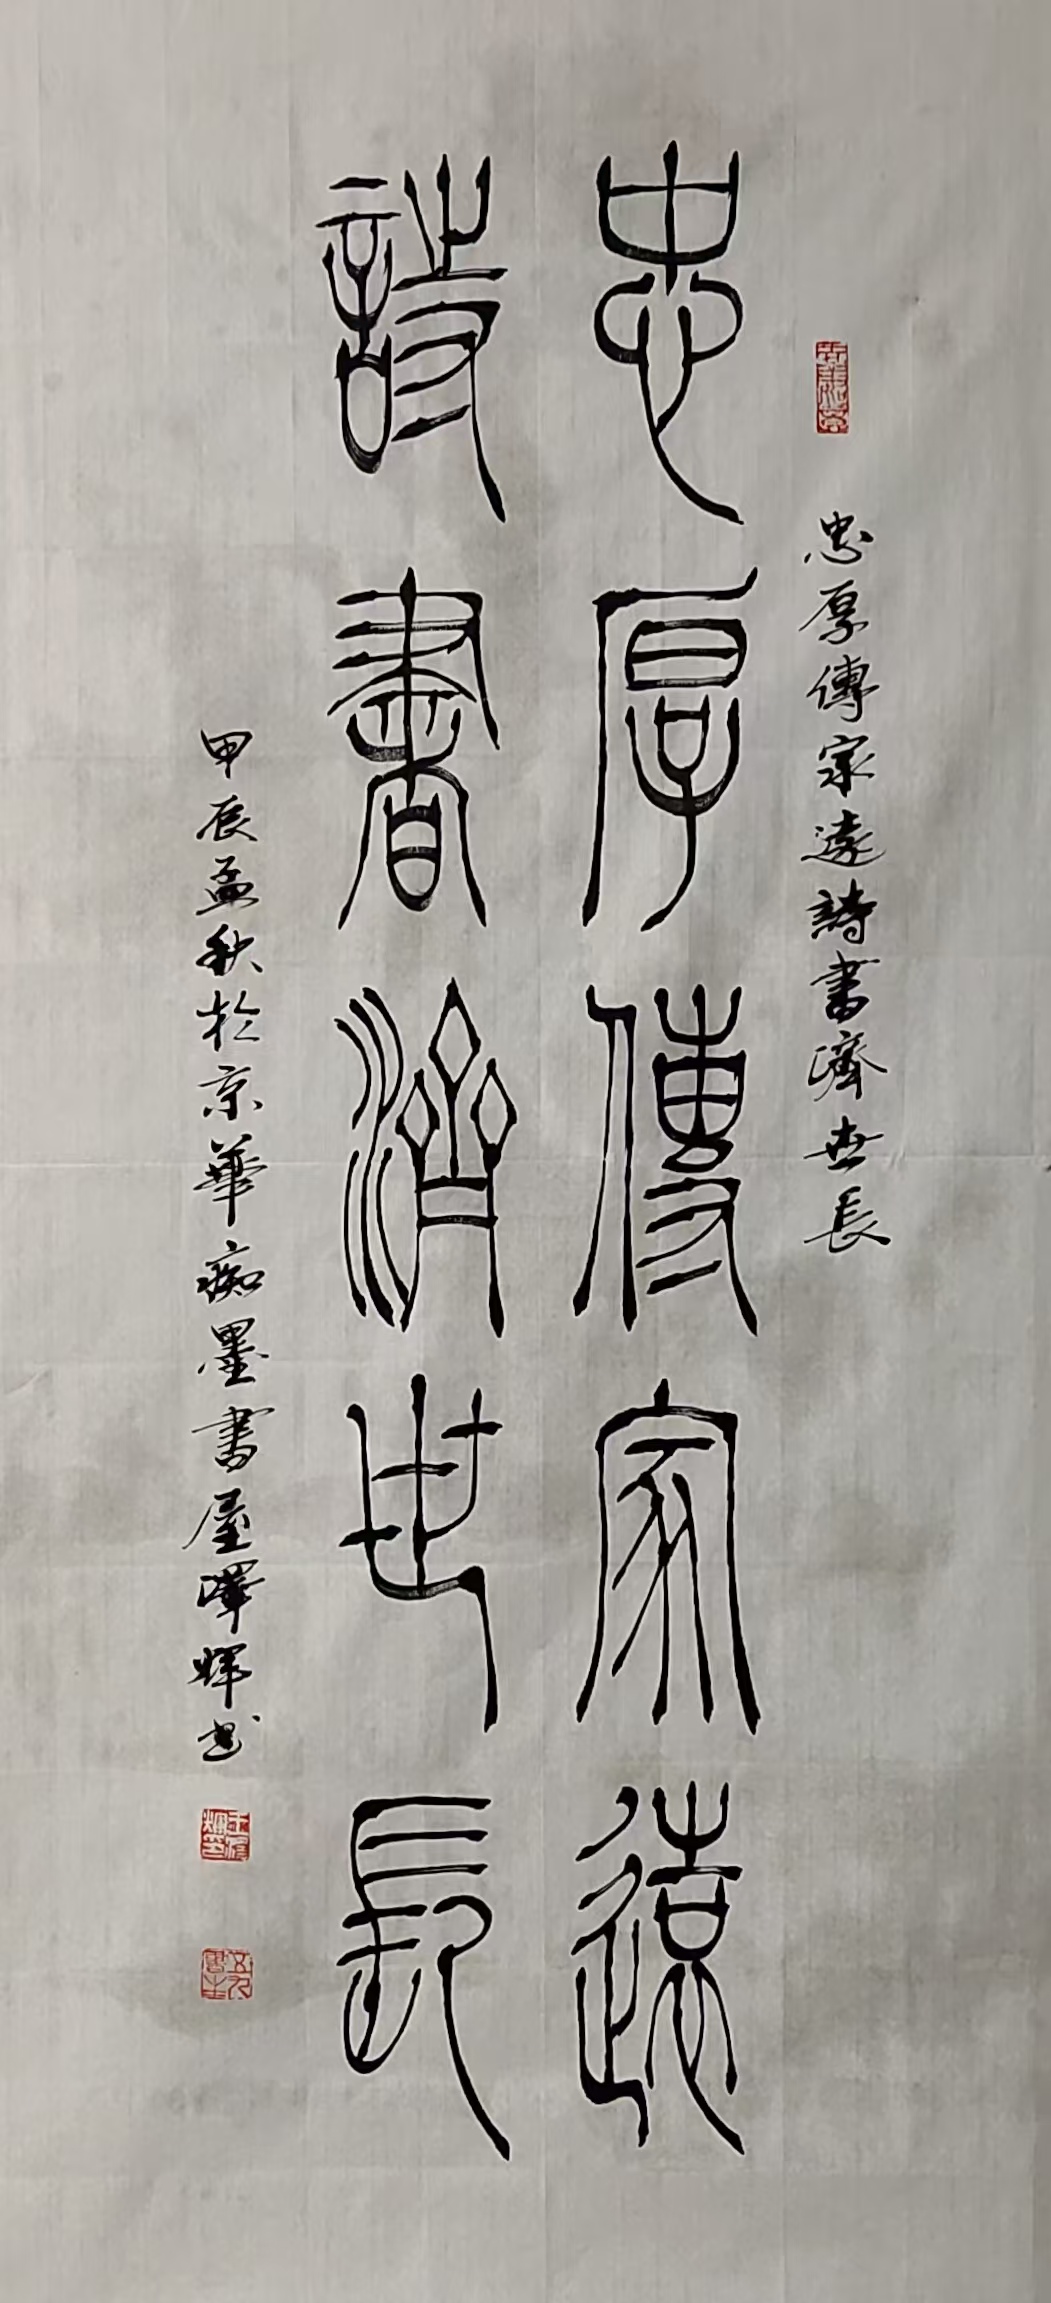 忠厚傳家遠詩書濟世長
忠厚傳家遠
詩書濟世長
甲辰孟秋於京華痴墨書屋澤輝書